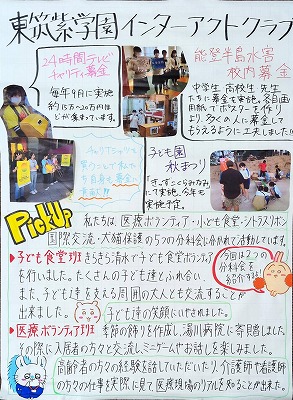 東筑紫学園インターアクトクラブ
24時間テレビ
チャリティ募金
毎年9月に実施
約15万～20万円ほ
どが集まっています。
能登半島水害
校内募金
中学生 高校生 先生
たちに募金を実施。各自画
用紙でポスターを作り
より多くの人に募金して
もらえるように工夫しました!!
チャリTシャツも
買うことで私たち
自身も募金に
貢献!!
子ども園
秋まつり
実施。今年も
実施予定。
PickUp
私たちは、医療ボランティア・小ども食堂・シトラスリボン
国際交流・犬猫保護の5つの分科会に分かれて活動しています。
▶子ども食堂班 きらきら清水で子ども食堂のボランティア
を行いました。たくさんの子ども達とふれ合い、
また、子ども達を支える周囲の大人とも交流することが
出来ました。子ども達の笑顔にいやされました。
今回は2つの
分科会を
紹介するよ!
▶医療ボランティア班 季節の飾りを作成し、湯川病院に寄贈しました。
その際に入居者の方々と交流し、ミニゲームやお話しを楽しみました。
高齢者の方々の経験を話していただいたり、介護師や看護師
の方々の仕事を実際に見て医療現場のリアルを知ることが出来た。